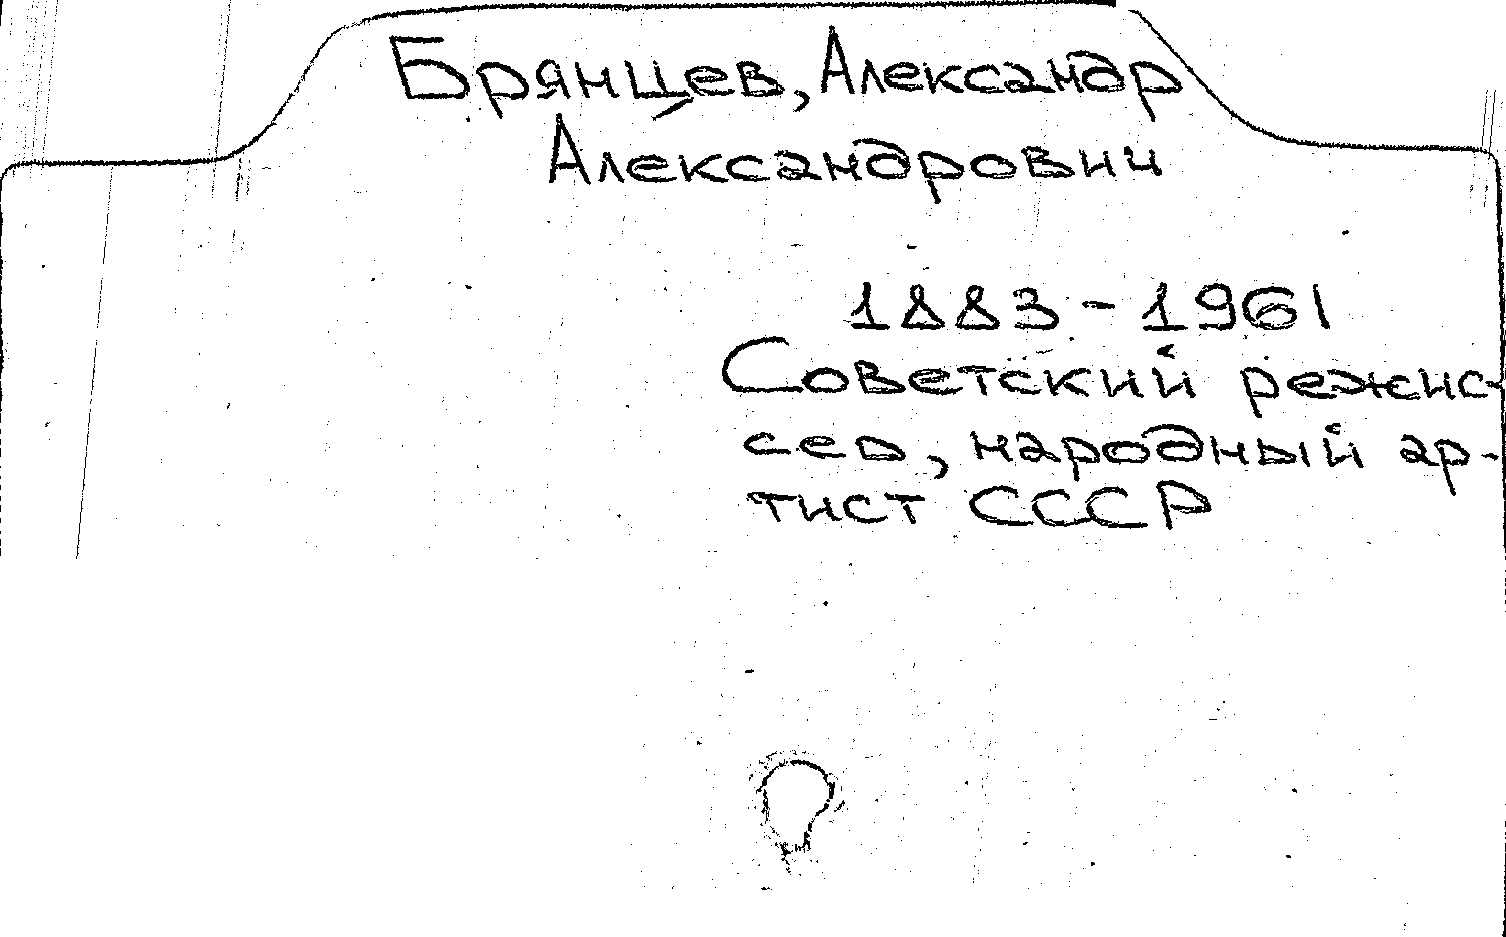 Брянцев, Александр
Александрович
1883-1961
Советский режис-
сер, народный ар-
тист СССР